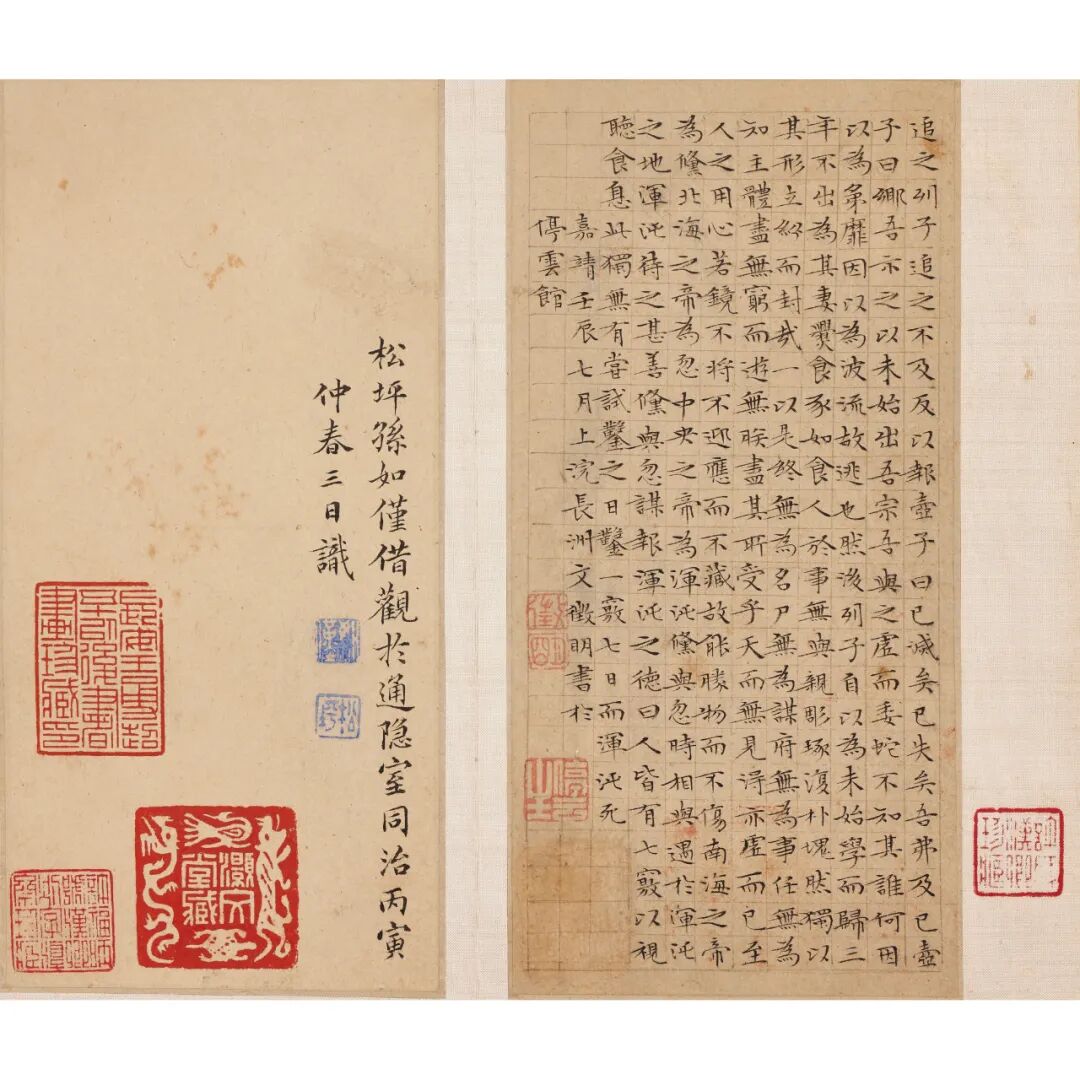 許氏漢卿珍藏
追之列子追之不及反以報壺子曰已滅矣已失矣吾弗及已壺
子曰鄉吾示之以未始出吾宗吾與之虛而委蛇不知其誰何因
以為弟靡因以為波流故逃也然後列子自以為未始學而歸三
年不出為其妻爨食豕如食人於事無與親彫琢復朴塊然獨以
其形立紛而封哉一以是終無為名尸無為謀府無為事任無為
知主體盡無窮而遊無朕盡其所受乎天而無見得亦虛而已至
人之用心若鏡不將不迎應而不藏故能勝物而不傷南海之帝
為儵北海之帝為忽中央之帝為渾沌儵與忽時相與遇於渾沌
之地渾沌待之甚善儵與忽謀報渾沌之德曰人皆有七竅以視
聽食息此獨無有嘗試鑿之日鑿一竅七日而渾沌死
嘉靖壬辰七月上浣長洲文徵明書於
停雲館
徵明
松坪孫如僅借觀於通隱室同治丙寅
仲春三日識
松坪